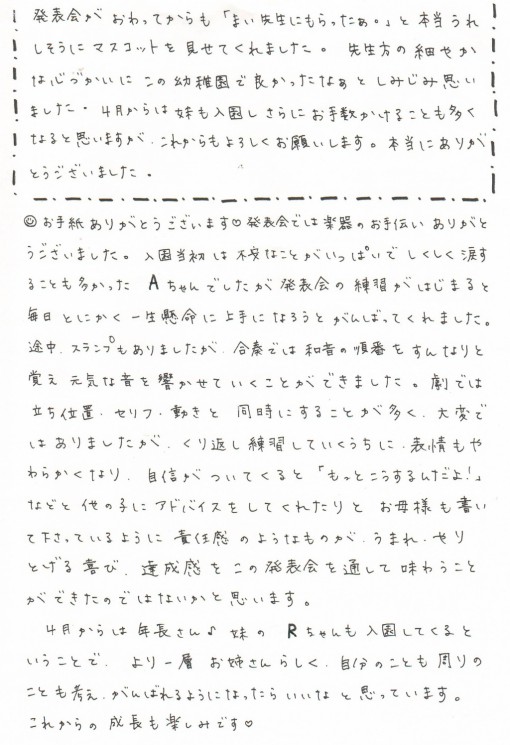 発表会が おわってからも「まい先生にもらったぁ。」と 本当うれ
しそうに マスコットを 見せてくれました。 先生方の 細やか
な心づかいに この幼稚園で良かったなぁと しみじみ思い
ました。 4月からは 妹も入園し さらにお手数かけることも多く
なると思いますが、これからもよろしくお願いします。本当にありが
とうございました。
☺お手紙ありがとうございます♡発表会では楽器のお手伝い ありがと
うございました。 入園当初は 不安なことがいっぱいで しくしく 涙す
ることも多かった Aちゃんでしたが 発表会の 練習がはじまると
毎日 とにかく 一生懸命に 上手に なろうと がんばってくれました。
途中、スランプもありましたが、合奏では 和音の順番を すんなりと
覚え 元気な音を 響かせて いくことが できました。劇では
立ち位置・セリフ・動きと 同時にすることが多く、大変で
はありましたが、くり返し 練習していくうちに、表情もや
わらかくなり、自信が ついてくると「もっとこうするんだよ!」
などと 他の子に アドバイスをしてくれたりと お母様も書い
て下さっているように 責任感 のようなものが、うまれ、やり
とげる 喜び、達成感を この発表会を通して 味わうこと
ができたのではないかと思います。
4月からは 年長さん♪ 妹の Rちゃんも 入園してくると
いうことで、より一層 お姉さんらしく、自分のことも 周りの
ことも 考え、がんばれるようになったら いいな と 思っています。
これからの 成長も 楽しみです♡